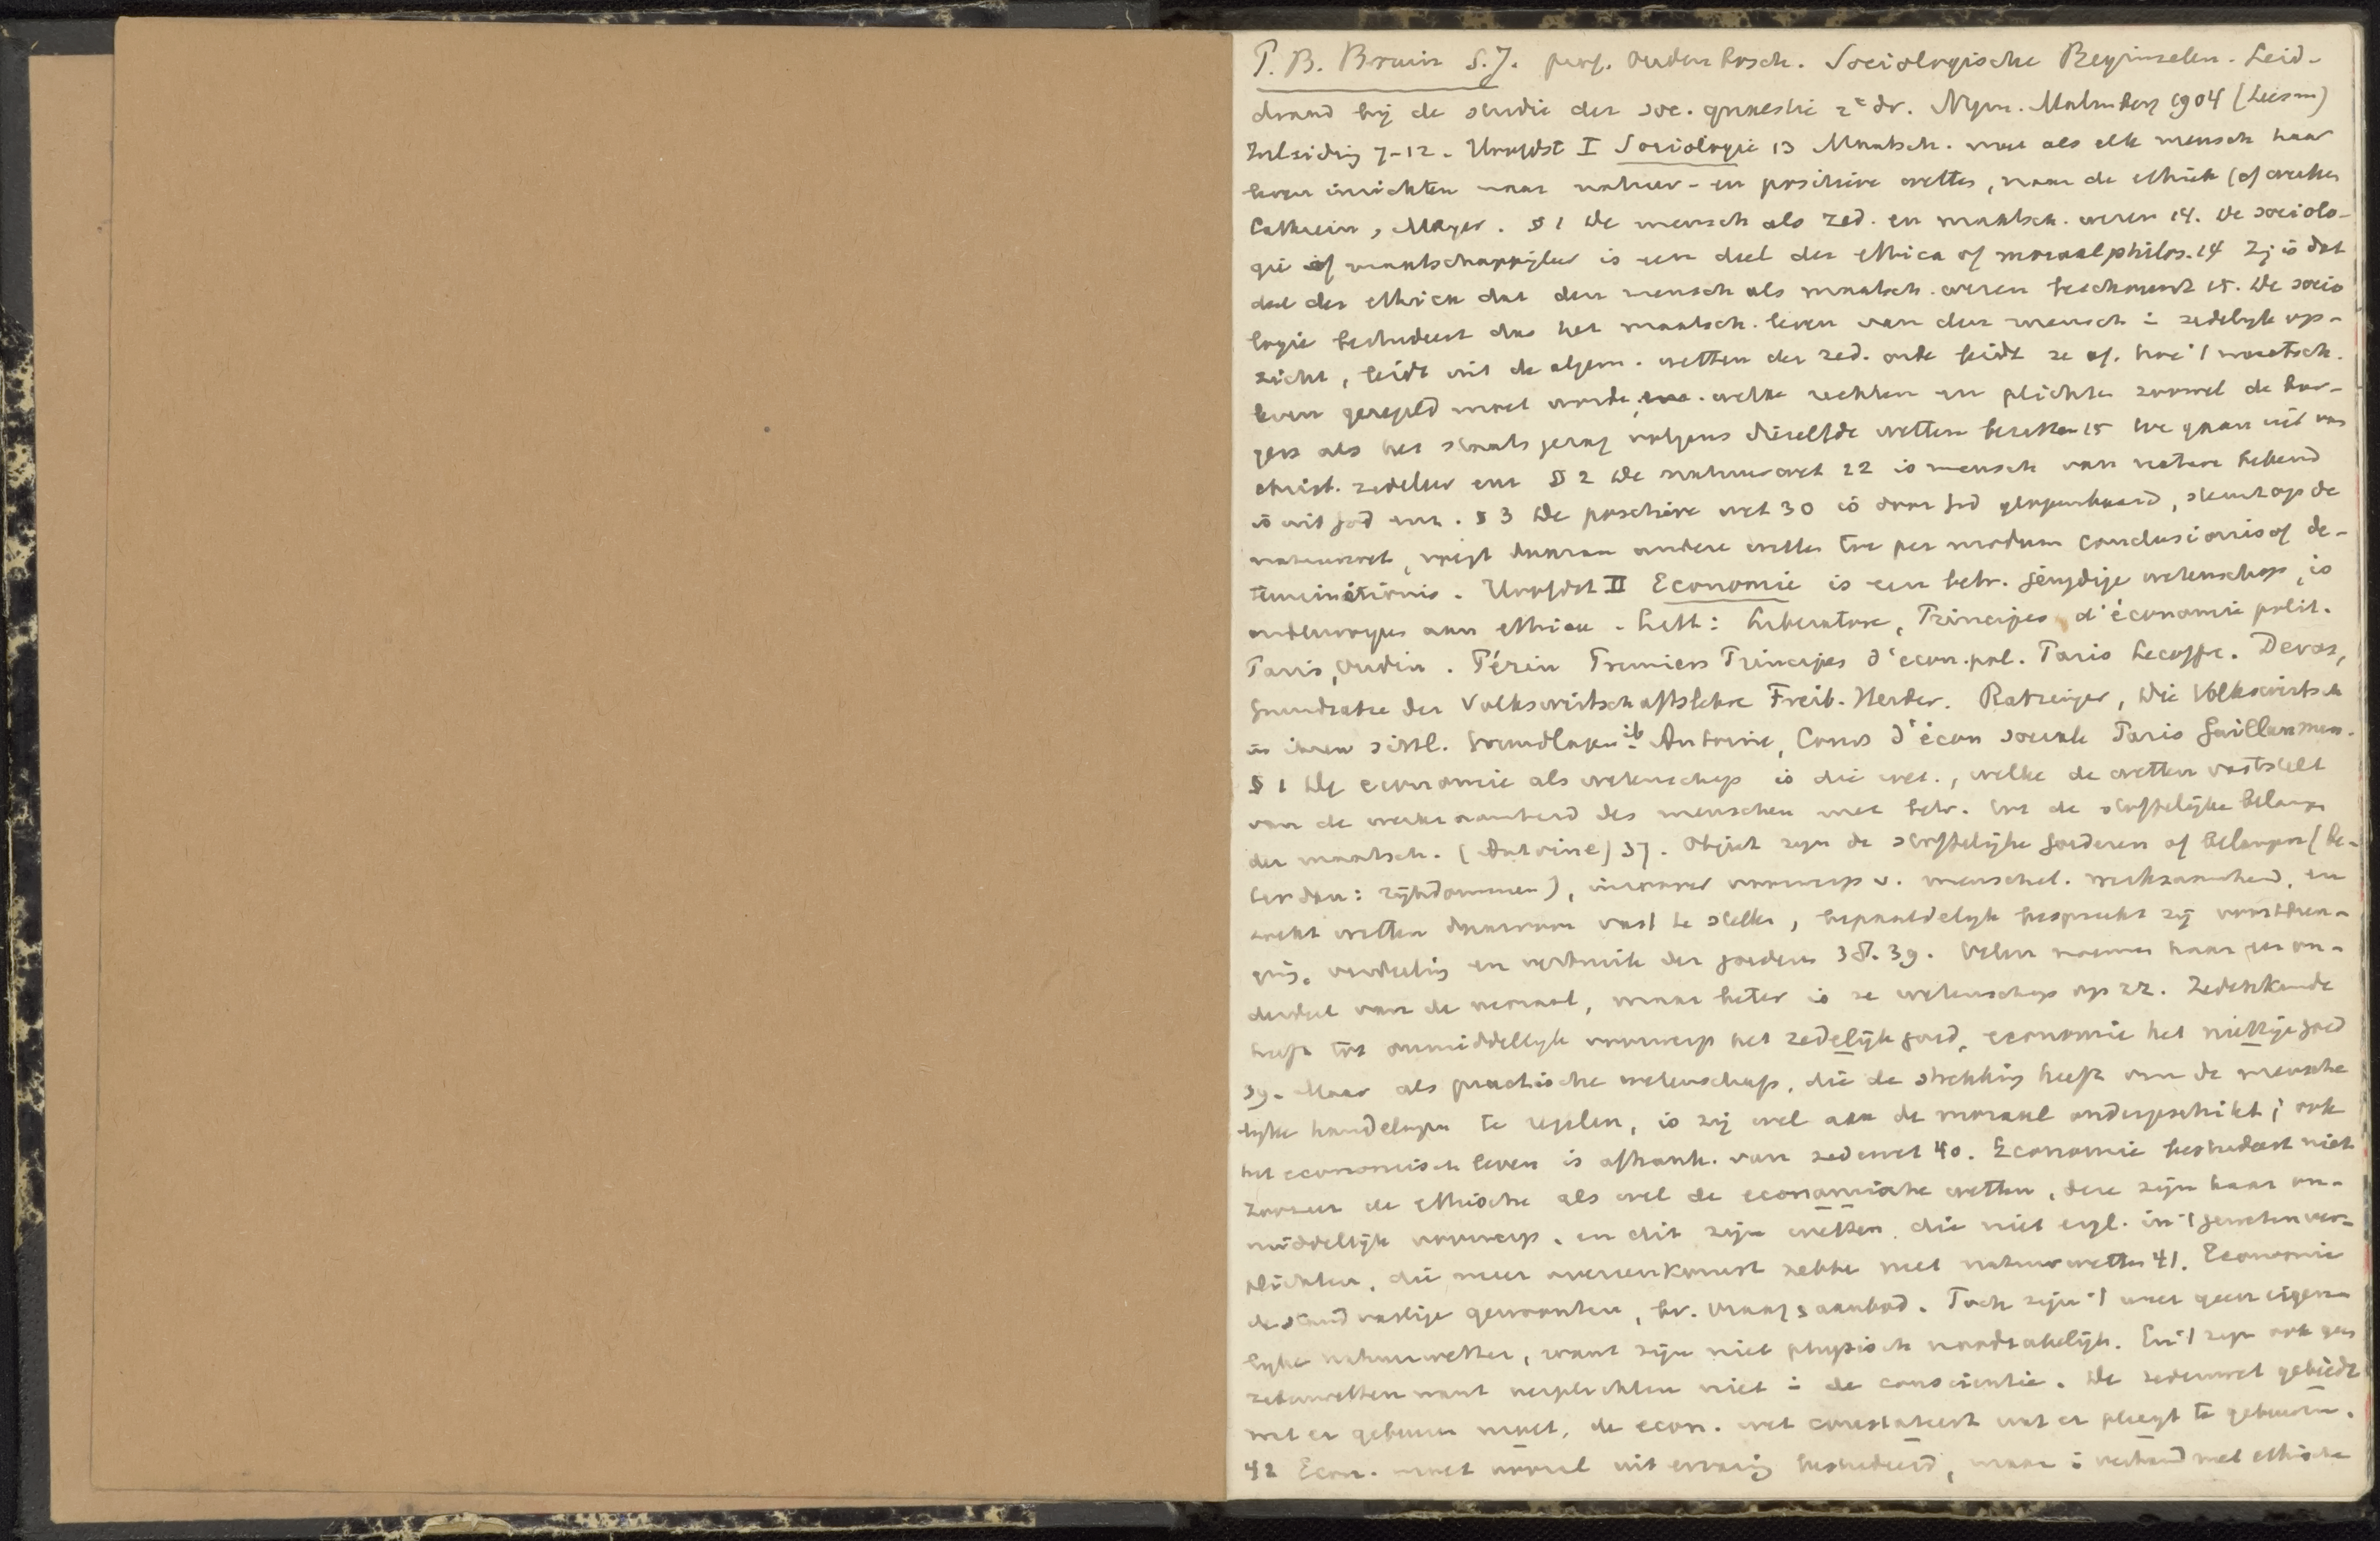 P. B. Bruin S.J. prof. Oudenbosch. Sociologische Beginselen. Leid-
draad bij de studie der soc. quaestie 2e dr. Nijm. Malmberg 1904 (Leesm)
Inleiding 7-12. Hoofdst I Sociologie 13 Maatsch. moet als elk mensch haar
leven inrichten naar natuur- en positieve wetten, naar de ethiek (of
Cathrein, Meyer. § 1 De mensch als zed. en maatsch. wezen 14. De sociolo-
gie of maatschappijleer is een deel der ethica of moraalphilos. 14 Zij is dat
deel der ethica dat den mensch als maatsch. wezen beschouwt 15. De socio
logie bestudeert dus het maatsch. leven van den mensch in zedelijk op-
zicht, leidt uit de algem. wetten der zed. orde leidt ze af. hoe 't maatsch.
leven geregeld moet worde, welke rechten en plichten zoowel de bur-
gers als het staatsgezag volgens diezelfde wetten bezitten 15 We gaan uit van
christ. zedeleer enz § 2 De natuurwet 22 is mensch van nature bekend
is uit God enz. § 3 De positieve wet 30 is door God geopenbaard, steunt op de
natuurwet, voegt daaraan andere wetten toe per modum conclusionis of de-
terminationis. Hoofdst II Economie is een betr. jeugdige wetenschap, is
onderworpen aan ethica. Litt: Liberatore, Principes d'économie polit.
Paris, Oudin. Périn Premiers Principes d'écon. pol. Paris Lecoffre. Devas,
Grundsätze der Volkswirtschaftslehre Freib. Herder. Ratzinger, Die Volkswirtsch
in ihren sittl. Grundlagen ib Antoine, Cours d'écon sociale Paris Guillaumin.
§ 1 De economie als wetenschap is die wet., welke de wetten vaststelt
van de werkzaamheid des menschen met betr. tot de stoffelijke belangen
der maatsch. (Antoine) 37. Object zijn de stoffelijke goederen of belangen (be-
ter dan: rijkdommen), inzoover voorwerp v. menschel. werkzaamheid, en
zoekt wetten daarvoor vast te stellen, hepaaldelijk bespreekt zij voortbren-
ging, verdeeling en verbruik der goederen 38. 39. Velen noemen haar een on-
derdeel van de moraal, maar beter is ze wetenschap op zz. Zedenkunde
heeft tot onmiddellijk voorwerp het zedelijk goed, economie het nuttige goed
39. Maar als practische wetenschap, die de strekking heeft om de mensche
lijke handelingen te regelen, is zij wel aan de moraal ondergeschikt; ook
het economisch leven is afhank. van zedenwet 40. Economie bestudeert niet
zoozeer de ethische als wel de economische wetten, deze zijn haar on-
middellijk voorwerp. en dit zijn wetten die niet eigl. in 't geweten ver-
plichten, die meer overeenkomst hebbe met natuurwetten 41. Economie
de standvastige gewoonten, bv. vraag & aanbod. Toch zijn 't weer geen eigen-
lijke natuurwetten, want zijn niet physisch noodzakelijk. En 't zijn ook geen
zedenwetten want verplichten niet in de conscientie. De zedenwet gebiedt
wat er gebeuren moet, de econ. wet constateert wat er pleegt te gebeuren.
42 Econ. moet vooral uit ervaring bestudeerd, maar in verband met ethische